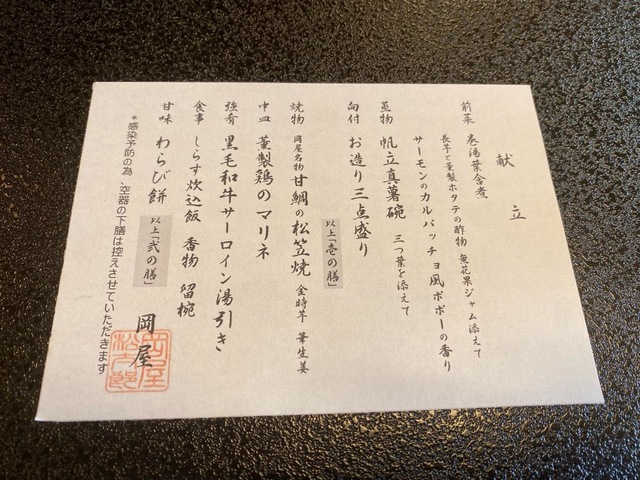 献立
前菜 巻湯葉含煮
長芋と薫製ホタテの酢物 無花果ジャム添えて
サーモンのカルパッチョ風ポポーの香り
蓋物 帆立真薯碗 三つ葉を添えて
向付 お造り三点盛り
以上「壱の膳」
焼物 岡屋名物 甘鯛の松笠焼 金時芋 筆生姜
中皿 薫製鶏のマリネ
強肴 黒毛和牛サーロイン湯引き
食事 しらす炊込飯 香物 留椀
甘味 わらび餅 以上「弐の膳」
岡屋
*感染予防の為、空器の下膳は控えさせていただきます